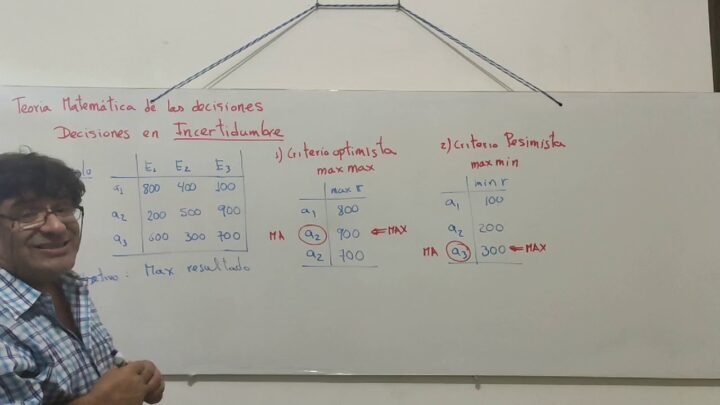 Teoría Matemática de las decisiones
Decisiones en Incertidumbre
E1 E2 E3
a1 800 400 100
a2 200 500 900
a3 600 300 700
: Max resultado
1) Criterio optimista
max max
max r
a1 800
MA a2 900 ⇐ MAX
a2 700
2) Criterio Pesimista
max min
min r
a1 100
a2 200
MA a3 300 ⇐ MAX